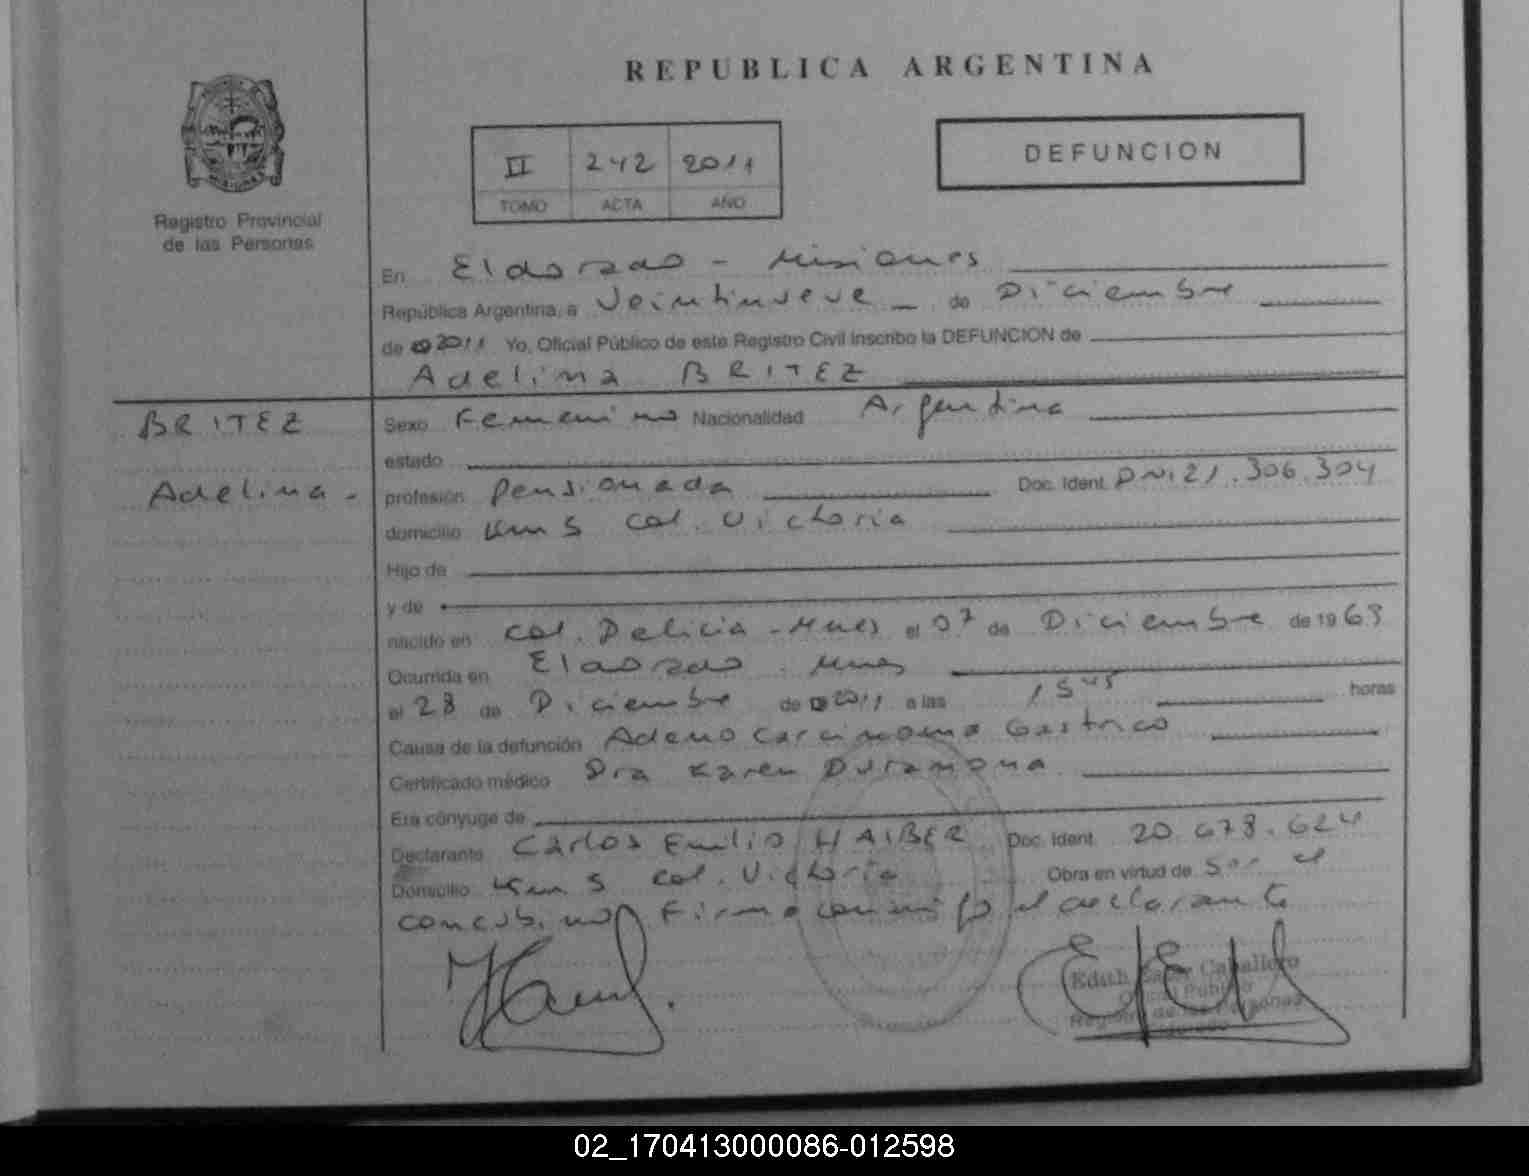 REPUBLICA ARGENTINA
II 242 2011
TOMO ACTA AÑO
DEFUNCION
Registro Provincial
de las Personas
En Eldorado - Misiones
República Argentina, a Veintinueve - de Diciembre
de 2011 Yo, Oficial Público de este Registro Civil inscribo la DEFUNCION de
Adelina BRITEZ
BRITEZ
Adelina -
Sexo Femenino Nacionalidad Argentina
estado
profesión Pensionada Doc. Ident. DNI 21.306.304
domicilio Km 5 Col. Victoria
Hijo de
y de
nacido en Col. Delicia - Mnes el 07 de Diciembre de 1963
Ocurrida en Eldorado - Mnes
el 28 de Diciembre de 2011 a las 15 45 horas
Causa de la defunción Adeno Carcinoma Gastrico
Certificado médico Dra Karen
Era cónyuge de
Declarante Carlos Emilio HAIBER Doc. Ident. 20.678.624
Domicilio Km 5 Col. Victoria Obra en virtud de Ser el
concubino Firma conmigo el declarante
Edith Caballero
Oficial Público
Registro de las Personas
Eldorado
02_170413000086-012598